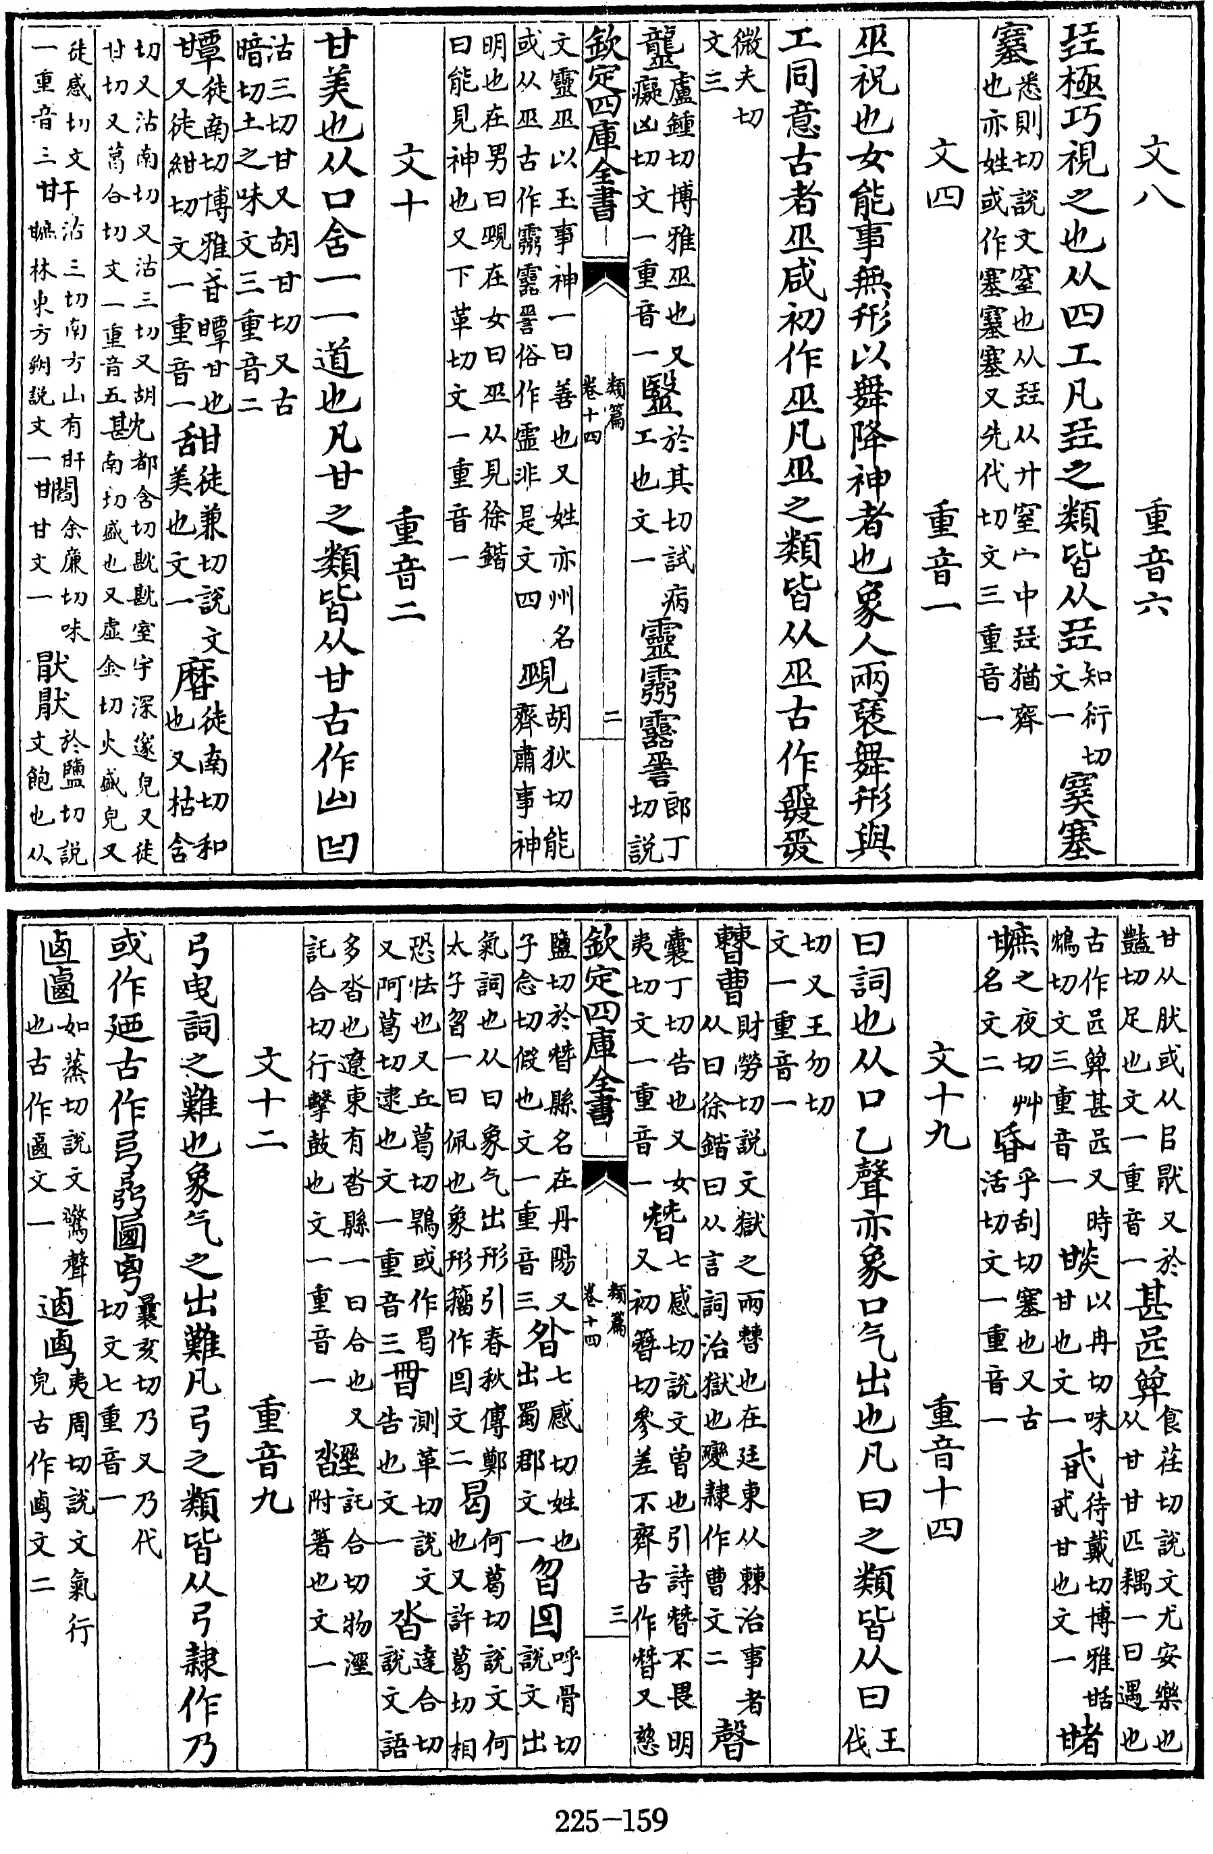 文八　重音六
㠭極巧視之也从四工凡㠭之類皆从㠭知衍切文一
塞悉則切說文窒也从㠭从廾窒宀中㠭猶齊也亦姓或作塞又先代切文三重音一
文四　重音一
巫祝也女能事無形以舞降神者也象人兩褎舞形與
工同意古者巫咸初作巫凡巫之類皆从巫古作
微夫切文三
盧鍾切博雅巫也又癡凶切文一重音一毉於其切試病工也文一靈郎丁切說
欽定四庫全書　類篇　卷十四　二
文靈巫以玉事神一曰善也又姓亦州名或从巫古作俗作霊非是文四覡胡狄切能齊肅事神
明也在男曰覡在女曰巫从見徐鍇曰能見神也又下革切文一重音一
文十　重音二
甘美也从口含一一道也凡甘之類皆从甘古作
沽三切甘又胡甘切又古暗切土之味文三重音二
徒南切博雅甘也又徒紺切文一重音一甜徒兼切說文美也文一徒南切和也又枯含
切又沽南切又沽三切又胡甘切又葛合切文一重音五都含切室宇深邃皃又徒南切盛也又虛金切火盛皃又
徒感切文一重音三沽三切南方山有林東方朔說文一余廉切味甘文一猒於鹽切說文飽也从
甘从肰或从㠯猒又於豔切足也文一重音一甚食荏切說文尤安樂也从甘甘匹耦一曰遇也
古作甚又時鴆切文三重音一以冉切味甘也文一待戴切博雅甘也文一
之夜切艸名文二乎刮切塞也又古活切文一重音一
文十九　重音十四
曰詞也从口乙聲亦象口气出也凡曰之類皆从曰王伐
切又王勿切文一重音一
曹財勞切說文獄之兩曹也在廷東从棘治事者从曰徐鍇曰从言詞治獄也變隸作曹文二
囊丁切告也又女夷切文一重音一朁七感切說文曾也引詩朁不畏明又初簪切參差不齊古作朁又慈
欽定四庫全書　類篇　卷十四　三
鹽切於朁縣名在丹陽又子念切假也文一重音三七感切姓也出蜀郡文一曶呼骨切說文出
氣詞也从曰象气出形引春秋傳鄭太子曶一曰佩也象形籒作回文二曷何葛切說文何也又許葛切相
恐怯也又丘葛切鶡或作曷又阿葛切逮也文一重音三測革切說文告也文一沓達合切說文語
多沓也遼東有沓縣一曰合也又託合切行擊鼓也文一重音一託合切物溼附箸也文一
文十二　重音九
弓曳詞之難也象气之出難凡弓之類皆从弓隸作乃
或作迺古作曩亥切又乃代切文七重音一
如蒸切說文驚聲也古作文一夷周切說文氣行皃古作文二
225-159